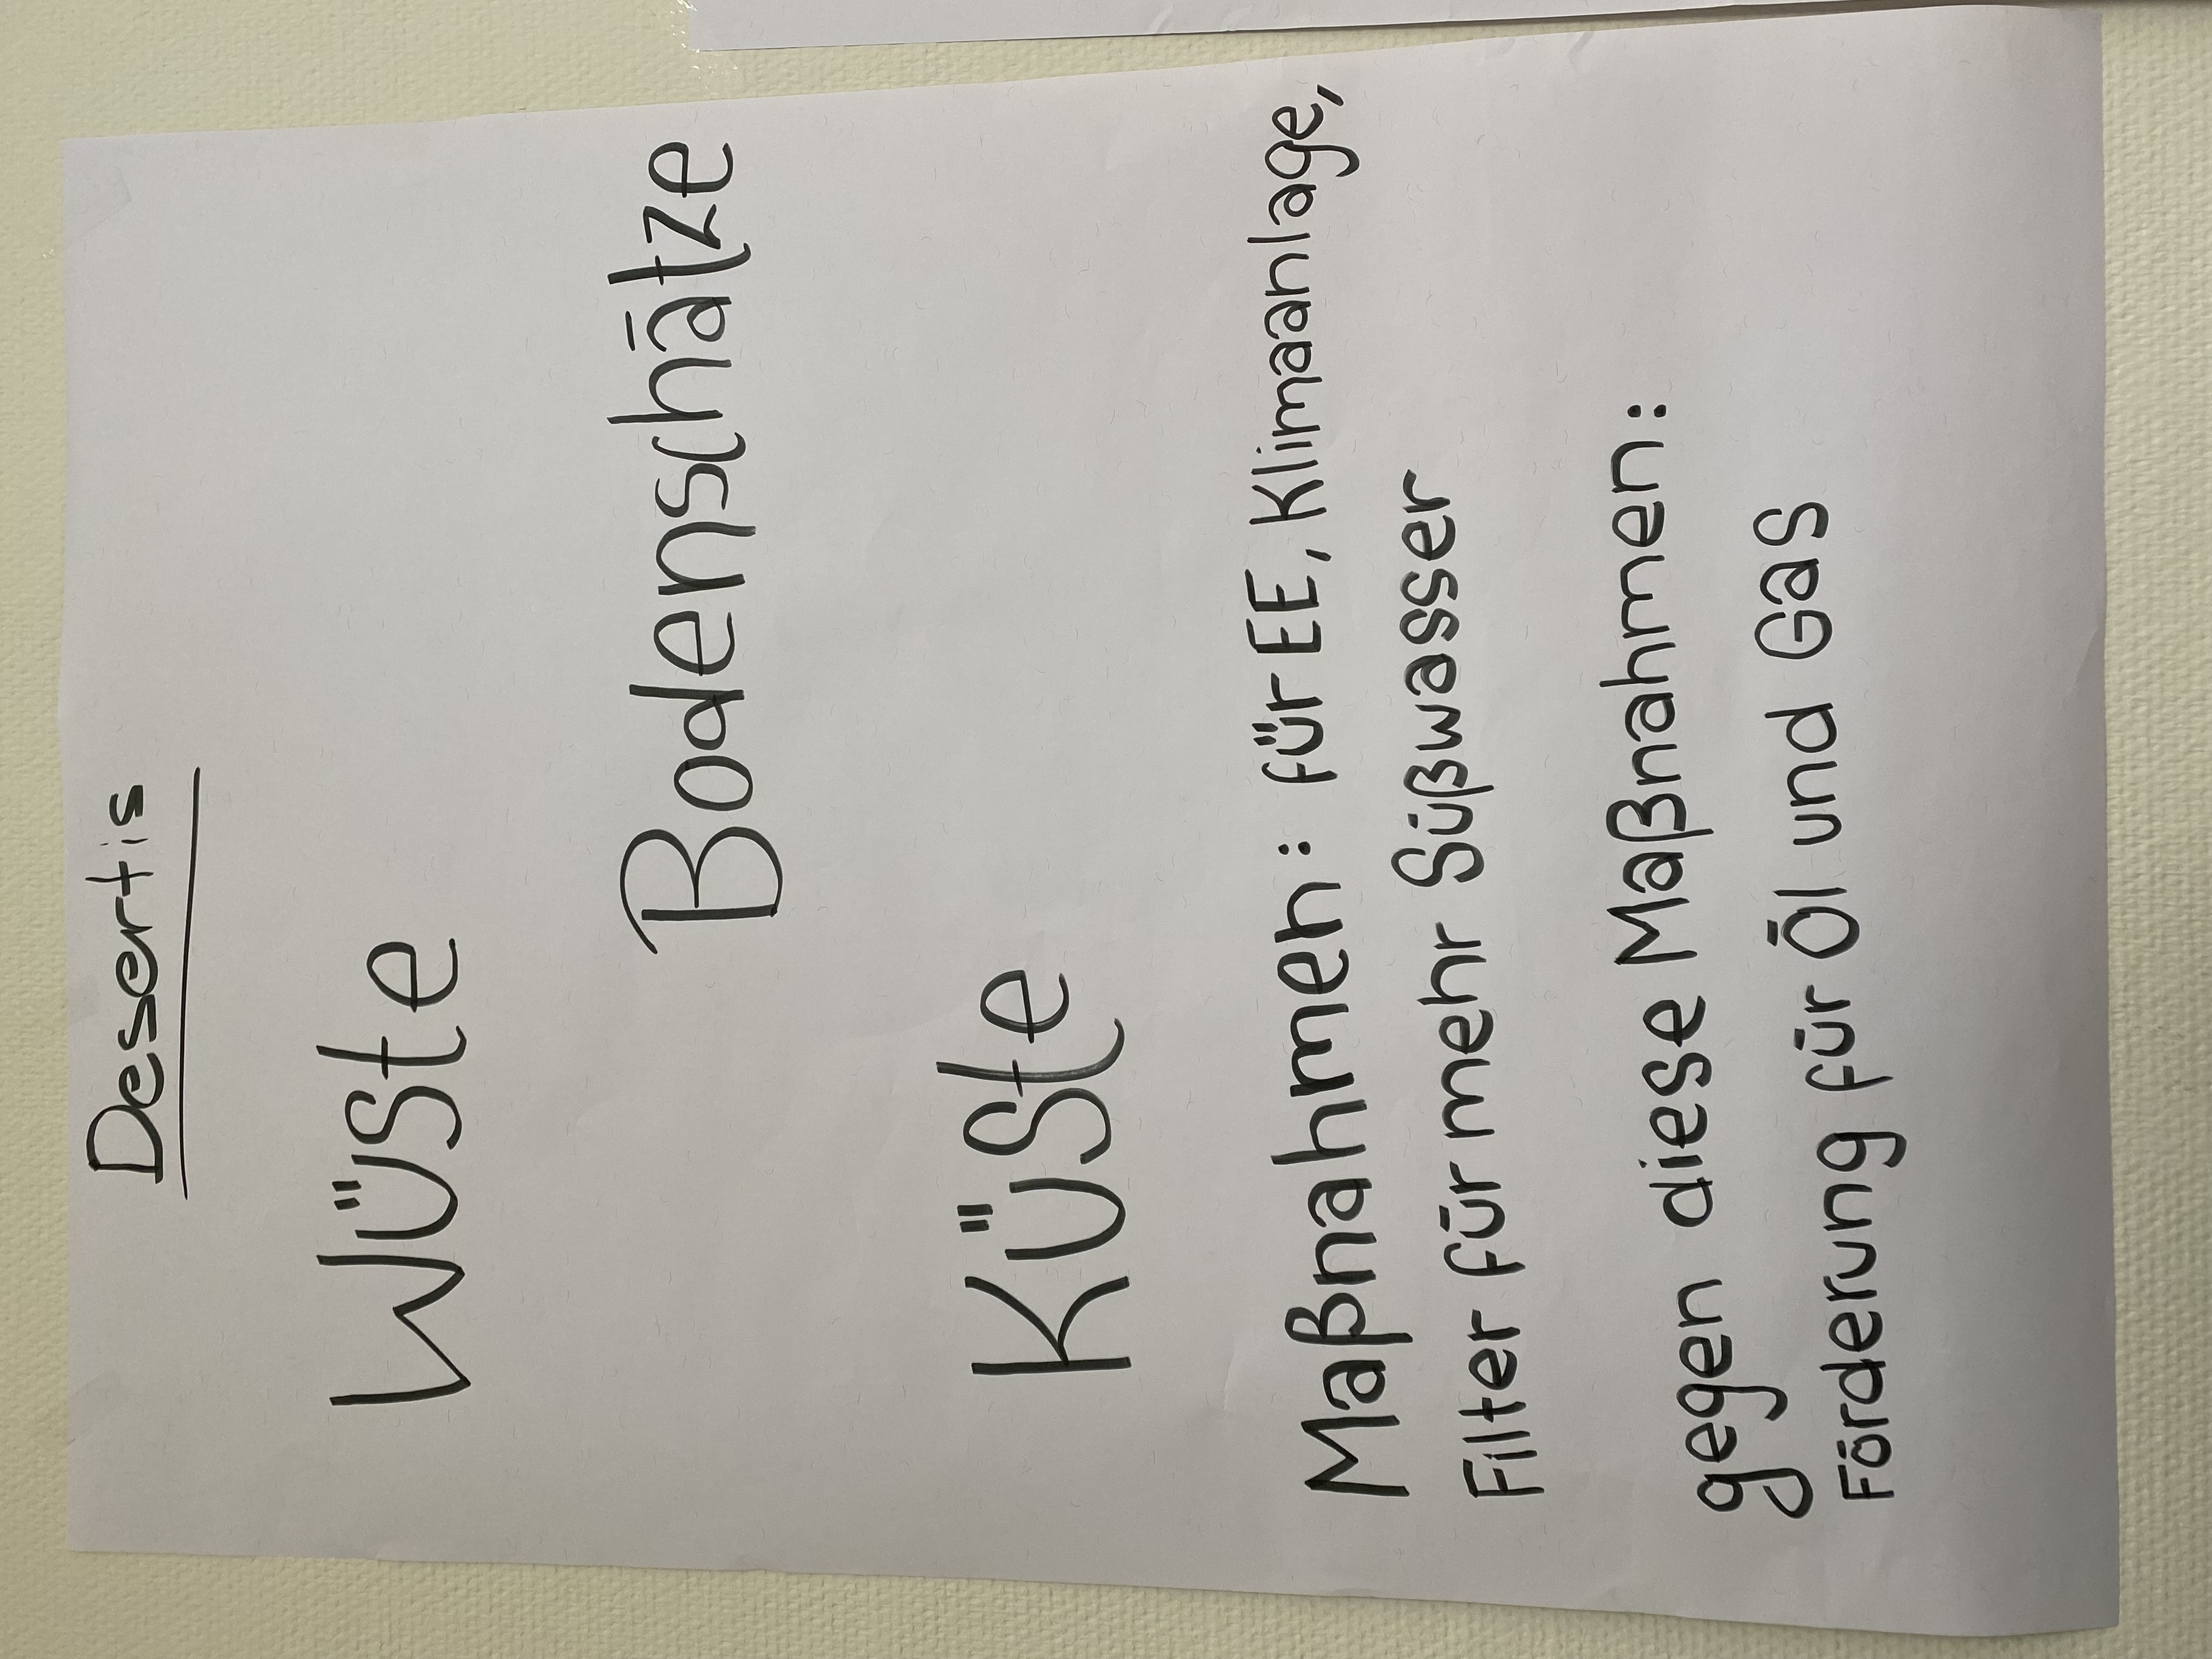 Desertis
Wüste
Bodenschätze
Küste
Maßnahmen: für EE, Klimaanlage,
Filter für mehr Süßwasser
gegen diese Maßnahmen:
Förderung für Öl und Gas